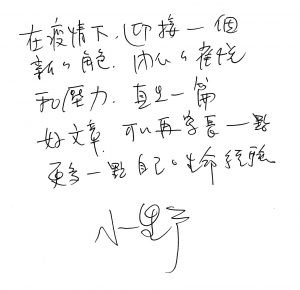 在疫情下,迎接一個
新的角色.內心的徬徨
和壓力.真是一篇
好文章.可以再寫長一點
更多一點自己的生命經驗
小野